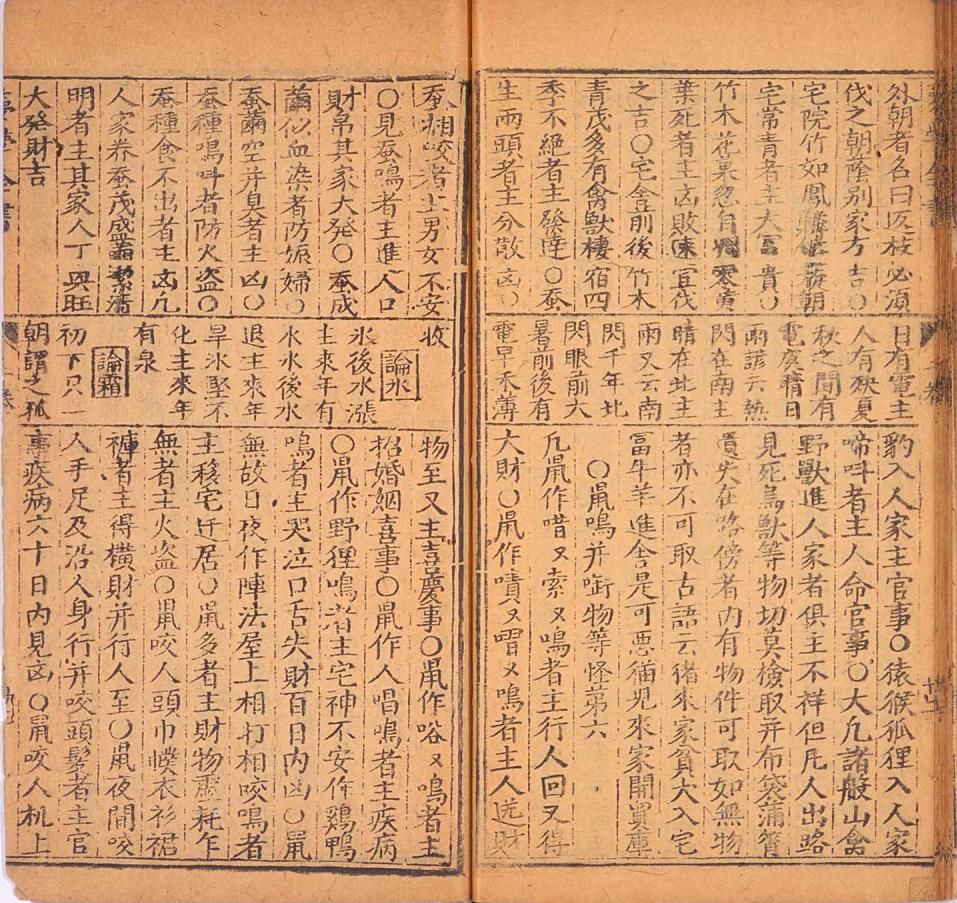 外朝者名曰反枝必須
伐之朝蔭别家方吉〇
宅院竹如鳳朝
宅常青者主大富貴〇
竹木花果忽自零黄
葉死者主凶敗速宜伐
之吉〇宅舍前後竹木
青茂多有禽獸棲宿四
季不絶者主發達〇蚕
生兩頭者主分散凶〇
日有電主
人有殃夏
秋之間有
電夜晴日
雨諺云熱
閃在南主
晴在北主
雨又云南
閃千年北
閃眼前大
暑前後有
電早禾薄
豹入人家主官事〇猿猴狐狸入人家
啼呌者主人命官事〇大凡諸般山禽
野獸進人家者俱主不祥但凡人出路
見死鳥獸等物切莫檢取并布袋蒲簣
遺失在路傍者内有物件可取如無物
者亦不可取古語云猪來家貧犬入宅
冨牛羊進舍是可惡猫児來家開買庫
〇鼠鳴并啣物等怪第六
凡鼠作唶又索又鳴者主行人回又得
大財〇鼠作嘖又唱又鳴者主人送財
蚕相咬者主男女不安
〇見蚕鳴者主進人口
財帛其家大發〇蚕成
繭似血染者防娠婦〇
蚕繭空并臭者主凶〇
蚕種鳴呌者防火盗〇
蚕種食不出者主凶凡
人家养蚕茂盛繭潔清
明者主其家人丁興旺
大發財吉
收
論氷
氷後水漲
主來年有
水氷後水
退主來年
旱氷堅不
化主來年
有泉
論霜
初下只一
朝謂之孤
物至又主喜慶事〇鼠作峪又鳴者主
招婚姻喜事〇鼠作人唱鳴者主疾病
〇鼠作野狸鳴者主宅神不安作鷄鴨
鳴者主哭泣口舌失財百日内凶〇鼠
無故日夜作陣法屋上相打相咬鳴者
主移宅迁居〇鼠多者主財物虚耗乍
無者主火盗〇鼠咬人頭巾幞衣衫裙
褲者主得横財并行人至〇鼠夜間咬
人手足及沿人身行并咬頭髮者主官
事疾病六十日内見凶〇鼠咬人机上